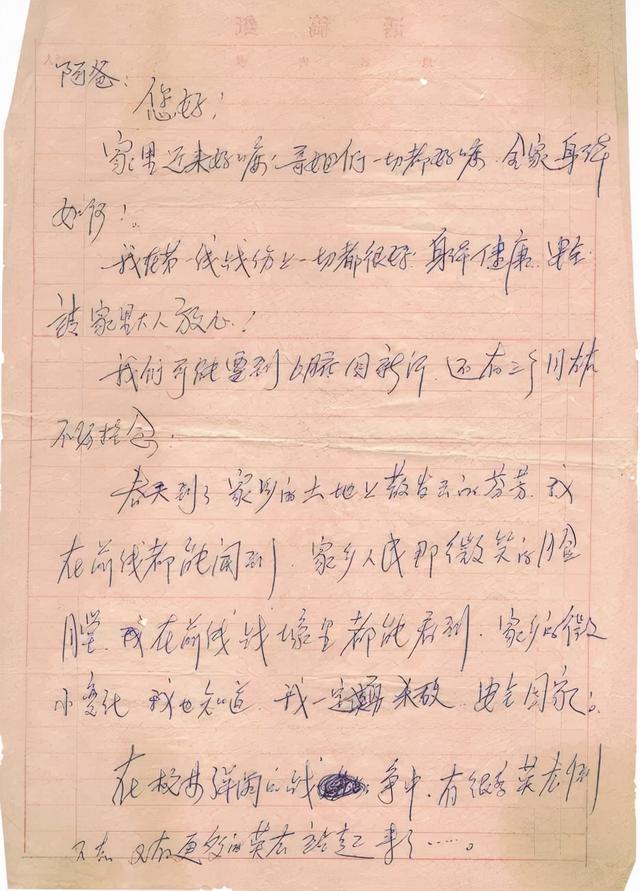 阿爸：
您好！
家里近来好嘛；哥姐们一切都好嘛．全家身体
如何！。
我在第一线战场上一切都很好．身体健康．安全
请家里大人放心．！
我们可能要到6月底回新沂．还有三个月左右
不必挂念．
春天到了家乡的土地上散发出的芬芳．我
在前线都能闻到．家乡人民那微笑的脸
膛．我在前线战壕里都能看到．家乡的微
小变化 我也知道．我一定 杀敌．安全回家；。
在枪林弹雨的战争中．有很多英雄倒
下去 又有更多的英雄站起来了……。